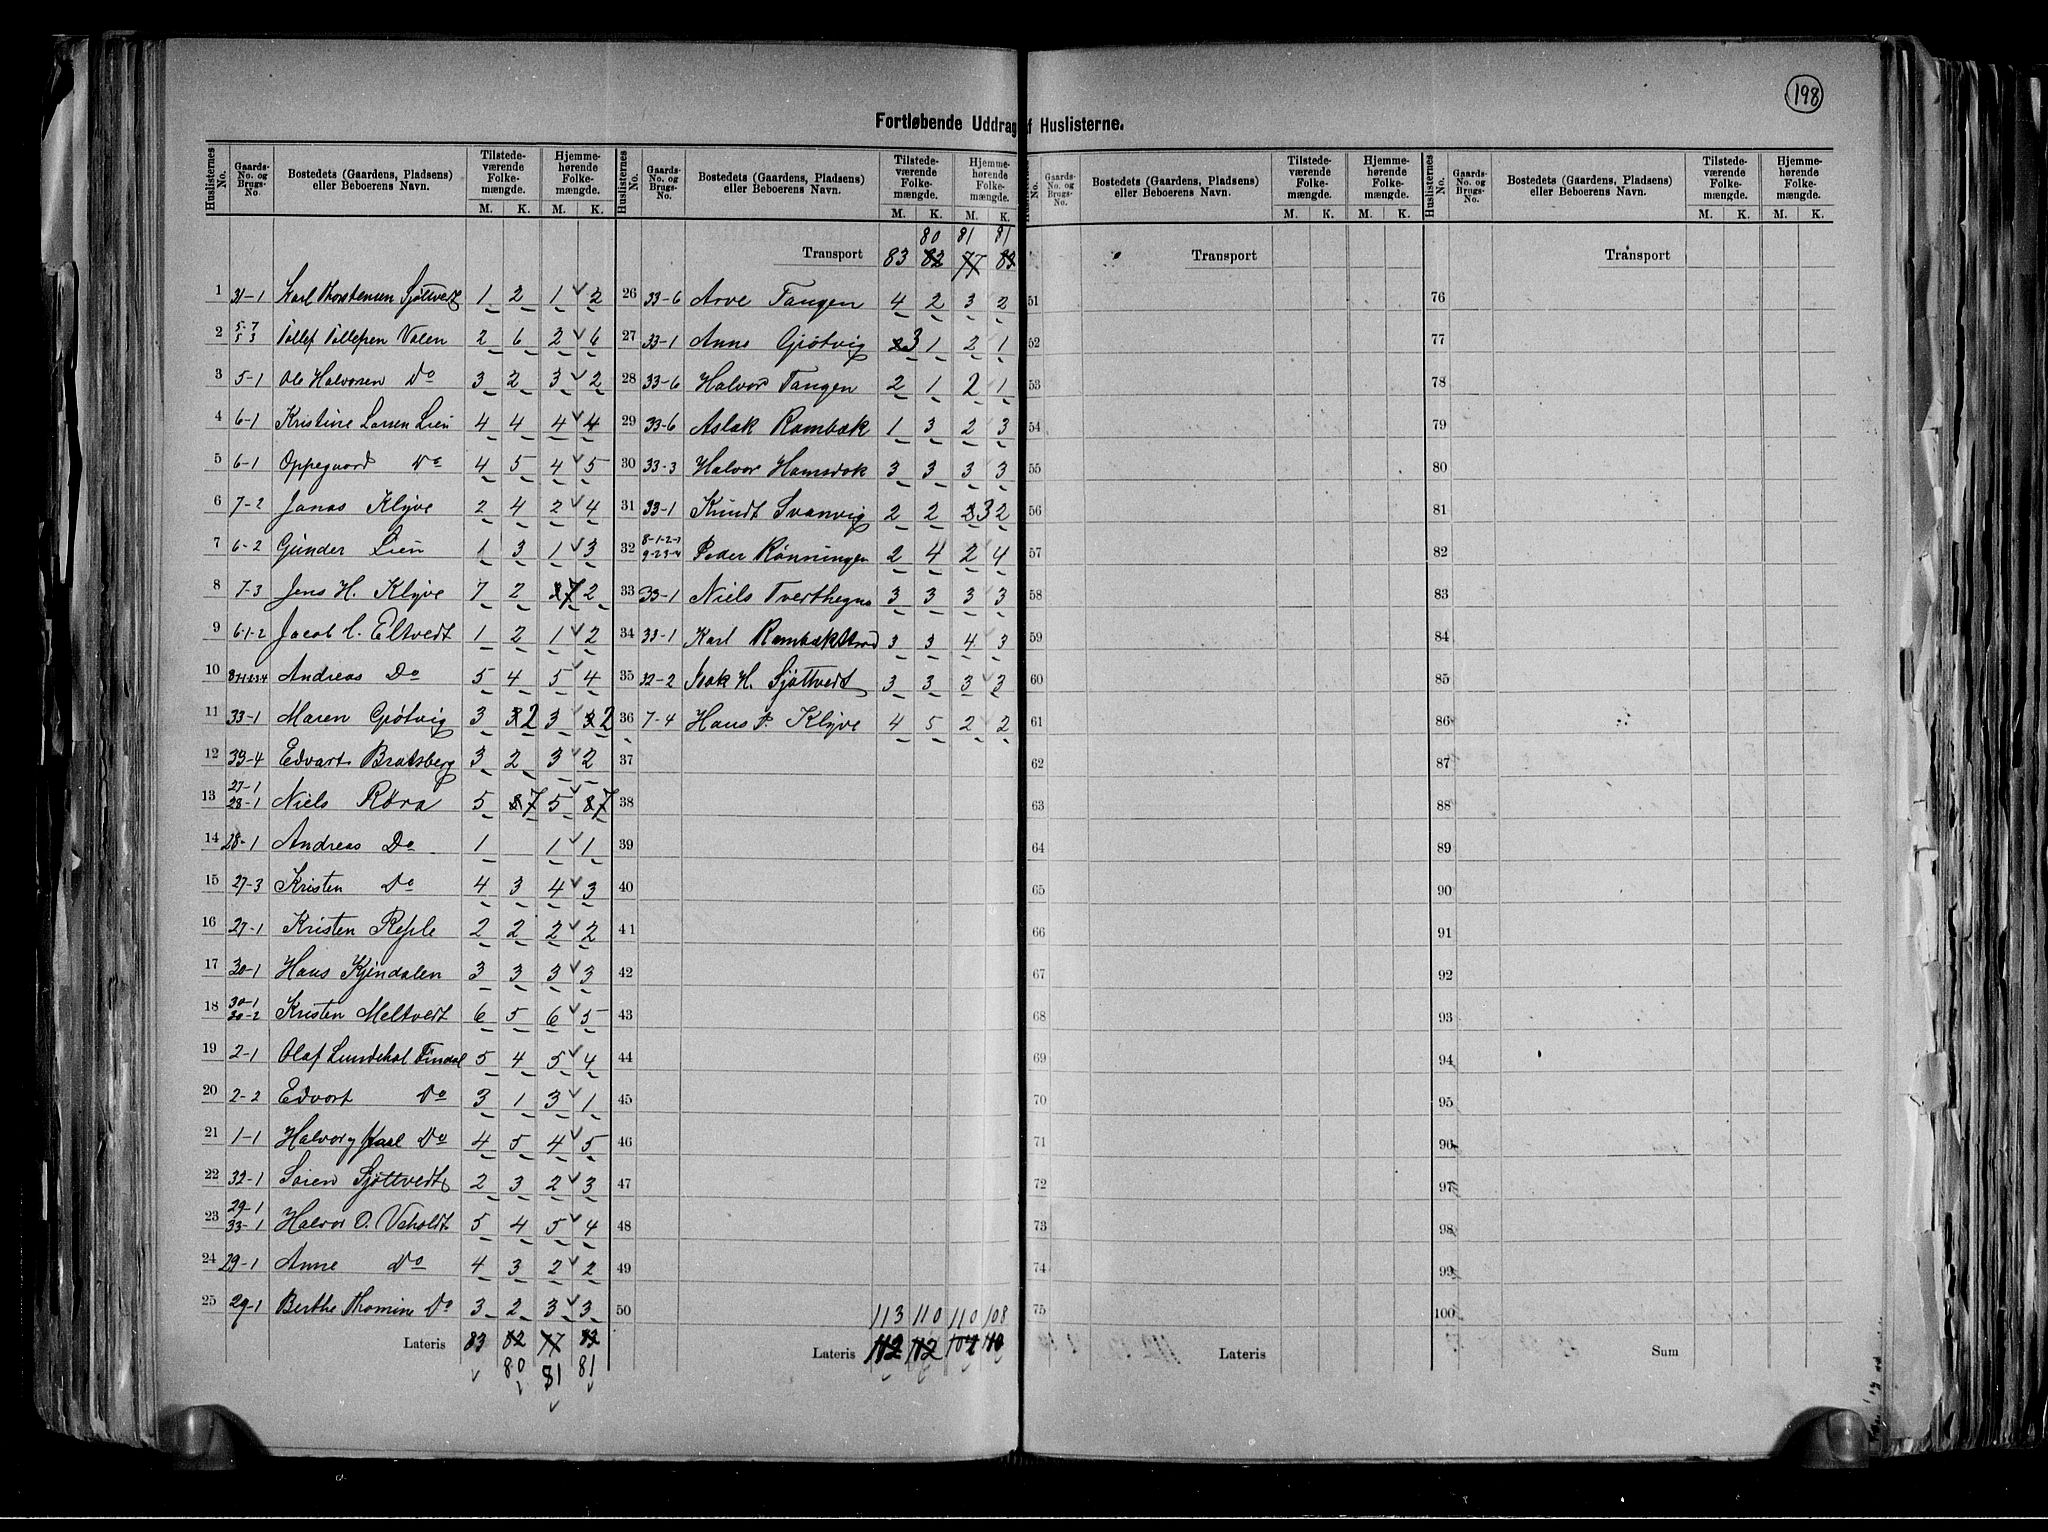 198
Fortløbende Uddrag af Huslisterne.
Huslisternes No. | Gaards-No. og Brugs-No. | Bostedets (Gaardens, Pladsens) eller Beboerens Navn. | Tilstedeværende Folkemængde. M. K. | Hjemmehørende Folkemængde. M. K.
1 31-1 Karl Thorstensen Sjøttvedt 1 2 1 2
2 5-7 5-3 Tollef Tollefsen Valen 2 6 2 6
3 5-1 Ole Halvorsen Do 3 2 3 2
4 6-1 Kristine Larsen Lien 4 4 4 4
5 6-1 Oppegaard Do 4 5 4 5
6 7-2 Jonas Klyve 2 4 2 4
7 6-2 Gunder Lien 1 3 1 3
8 7-3 Jens H. Klyve 7 2 7 2
9 6-1-2 Jacob C. Eltvedt 1 2 1 2
10 Andreas Do 5 4 5 4
11 33-1 Maren Grøtvig 3 2 3 2
12 33-4 Edvart Bratsberg 3 2 3 2
13 27-1 28-1 Niels Røra 5 7 5 7
14 28-1 Andreas Do 1 1 1
15 27-3 Kristen Do 4 3 4 3
16 27-1 Kristen Røsle 2 2 2 2
17 30-1 Hans Kjendalen 3 3 3 3
18 30-1 30-2 Kristen Meltvedt 6 5 6 5
19 2-1 Olaf Lundehol Findal 5 4 5 4
20 2-2 Edvart Do 3 1 3 1
21 1-1 Halvor Karl Do 4 5 4 5
22 32-1 Søren Sjøttvedt 2 3 2 3
23 29-1 33-1 Halvor O. Veholdt 5 4 5 4
24 29-1 Anne Do 4 3 2 2
25 29-1 Berthe Thomine Do 3 2 3 3
Lateris 83 82 77 82
80 81 81
Huslisternes No. | Gaards-No. og Brugs-No. | Bostedets (Gaardens, Pladsens) eller Beboerens Navn. | Tilstedeværende Folkemængde. M. K. | Hjemmehørende Folkemængde. M. K.
80 81 81
Transport 83 82 77 83
26 33-6 Arve Tangen 4 2 3 2
27 33-1 Anne Grøtvig 3 1 2 1
28 33-6 Halvor Tangen 2 1 2 1
29 33-6 Aslak Rambæk 1 3 2 3
30 33-3 Halvor Hamsdok 3 3 3 3
31 33-1 Knudt Svanvig 2 2 3 2
32 8-1-2- 9-2-3-4 Peder Rønningen 2 4 2 4
33 33-1 Niels Tverthegna 3 3 3 3
34 33-1 Karl Rambækstrød 3 3 4 3
35 32-2 Isak H. Sjøttvedt 3 3 3 3
36 7-4 Hans P. Klyve 4 5 2 2
37
38
39
40
41
42
43
44
45
46
47
48
49
50 113 110 110 108
Lateris 112 112 104 110
Huslisternes No. | Gaards-No. og Brugs-No. | Bostedets (Gaardens, Pladsens) eller Beboerens Navn. | Tilstedeværende Folkemængde. M. K. | Hjemmehørende Folkemængde. M. K.
Transport
51
52
53
54
55
56
57
58
59
60
61
62
63
64
65
66
67
68
69
70
71
72
73
74
75
Lateris
Huslisternes No. | Gaards-No. og Brugs-No. | Bostedets (Gaardens, Pladsens) eller Beboerens Navn. | Tilstedeværende Folkemængde. M. K. | Hjemmehørende Folkemængde. M. K.
Transport
76
77
78
79
80
81
82
83
84
85
86
87
88
89
90
91
92
93
94
95
96
97
98
99
100
Sum